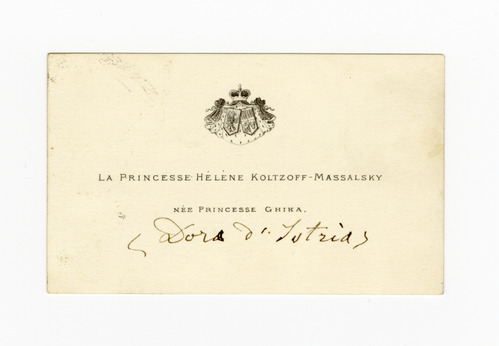 La Princesse Hélène Koltzoff-Massalsky
née Princesse Ghika.
(Dora d'Istria)